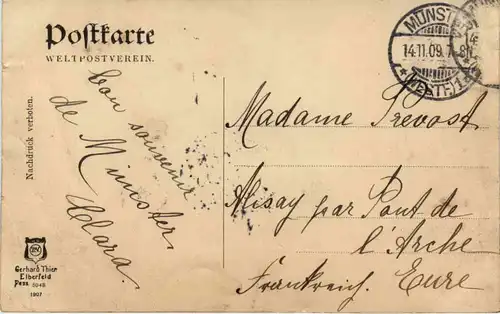 Postkarte
WELTPOSTVEREIN.
Nachdruck verboten.
Bon souvenir
de Münster
Clara.
Gerhard Thier
Elberfeld
1907
MÜNSTER
14.11.09.
(WESTF)
Madame Prevost
Alisay par Pont de
l'Arche
Frankreich. Eure